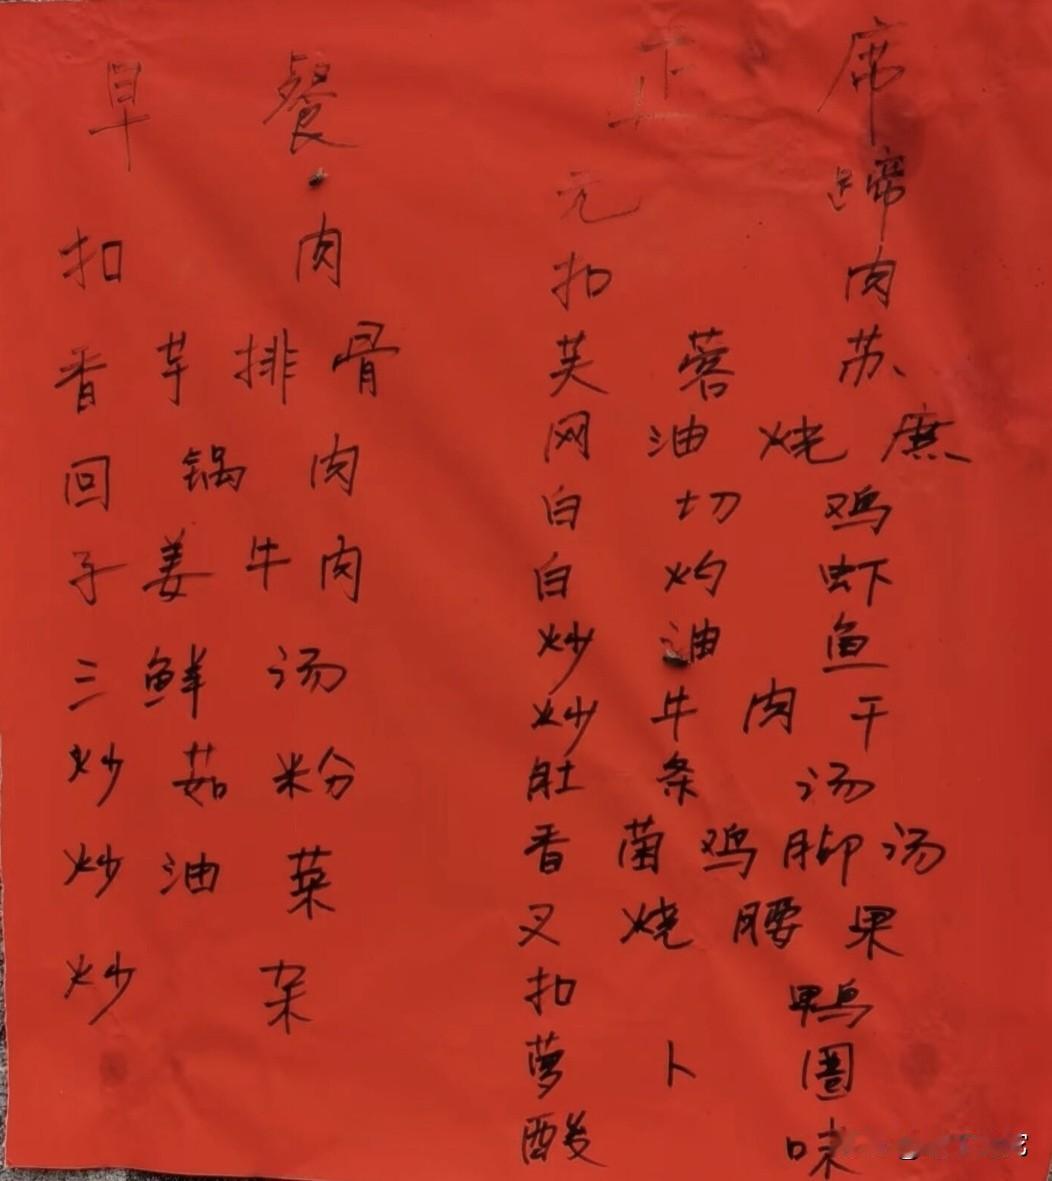 早餐
扣肉
香芋排骨
回锅肉
子姜牛肉
三鲜汤
炒茹粉
炒油菜
炒杂
正席
元蹄
扣肉
芙蓉苏
网油烧庶
白切鸡
白灼虾
炒油鱼
炒牛肉干
肚条汤
香菌鸡脚汤
叉烧腰果
扣鸭
萝卜圈
酸味